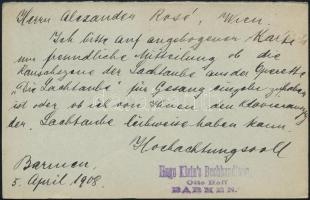 Herrn Alexander Rosé, Wien.
Ich bitte auf angebogener Karte
um freundliche Mitteilung ob die
der Lachtaube aus der Operette
"Die Lachtaube" für Gesang einzeln zu haben
ist oder ob ich von Ihnen den Klavierauszug
der Lachtaube leihweise haben kann.
Hochachtungsvoll
Barmen,
5. April 1908.
Hugo Klein's Buchhandlung
Otto Hoff
BARMEN.